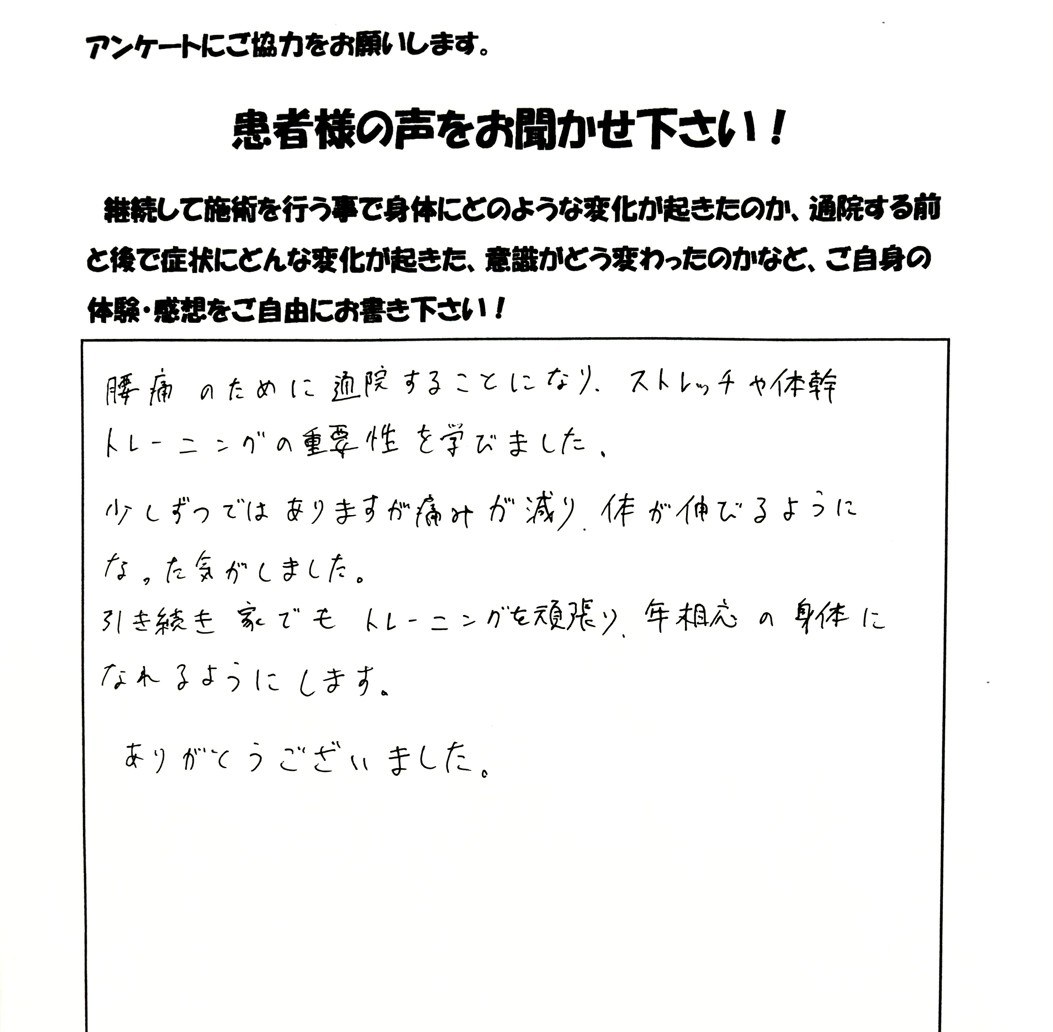 アンケートにご協力をお願いします。
患者様の声をお聞かせ下さい！
継続して施術を行う事で身体にどのような変化が起きたのか、通院する前
と後で症状にどんな変化が起きた、意識がどう変わったのかなど、ご自身の
体験・感想をご自由にお書き下さい！
腰痛のために通院することになり、ストレッチや体幹
トレーニングの重要性を学びました。
少しずつではありますが痛みが減り、体が伸びるように
なった気がしました。
引き続き家でもトレーニングを頑張り、年相応の身体に
なれるようにします。
ありがとうございました。